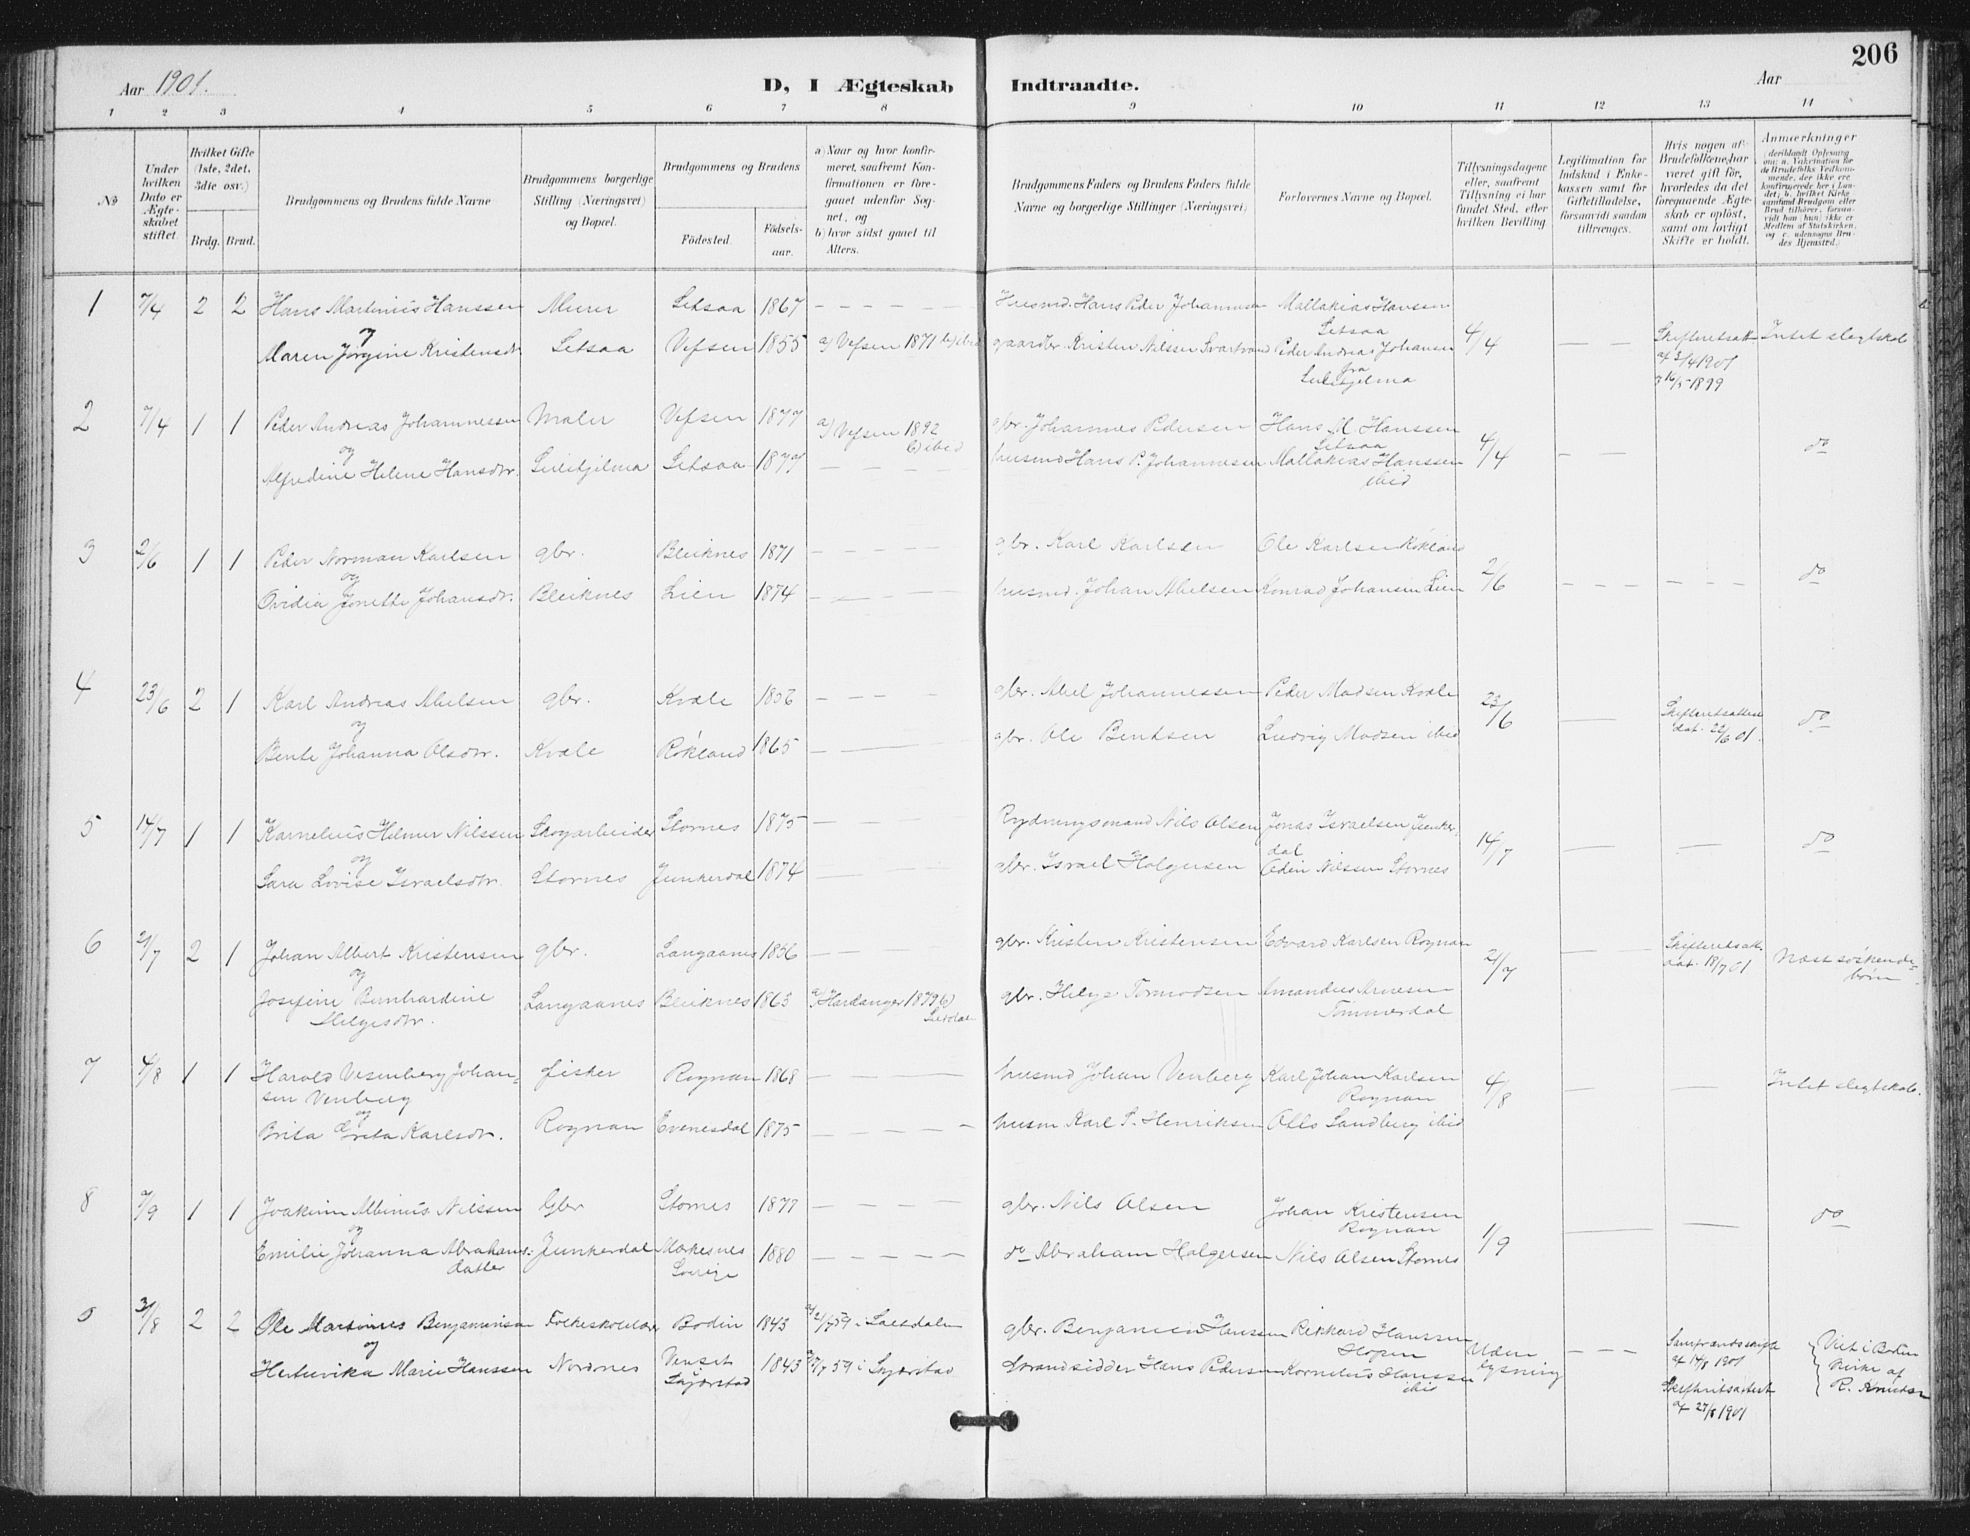 206
Aar 1901.
D, I Ægteskab Indtraadte.
Aar
1 2 3 4 5 6 7 8 9 10 11 12 13 14
No
Under hvilken Dato er Ægteskabet stiftet.
Hvilket Gifte (1ste, 2det, 3die osv.)
Brdg. Brud.
Brudgommens og Brudens fulde Navne
Brudgommens borgerlige Stilling (Næringsvei) og Bopæl.
Brudgommens og Brudens
Födested.
Födselsaar.
a) Naar og hvor konfirmeret, saafremt Konfirmationen er foregaaet udenfor Sognet, og
b) hvor sidst gaaet til Alters.
Brudgommens Faders og Brudens Faders fulde Navne og borgerlige Stillinger (Næringsvei)
Forlovernes Navne og Bopæl.
Tillysningsdagene eller, saafremt Tillysning ei har fundet Sted, efter hvilken Bevilling
Legitimation for Indskud i Enkekassen samt for Giftetilladelse, forsaavidt saadan tiltrænges.
Hvis nogen af Brudefolkene har været gift för, hvorledes da det foregaaende Ægteskab er oplöst, samt om lovligt Skifte er holdt.
Anmærkninger
(deriblandt Oplysning om: a. Vakcination for de Brudefolks Vedkommende, der ikke ere konfirmerede her i Landet; b. hvilket Kirkesamfund Brudgom eller Brud tilhörer, forsaavidt han (hun) ikke er Medlem af Statskirken, og c. udensogns Brudes Hjemsted.)
1 7/4 2 2 Hans Martinus Hanssen Murer Setsaa 1867 — — — — Husmd. Hans Peder Johannesen Mallakias Hansen
og Setsaa
Maren Jørgine Kristensdr Setsaa Vefsen 1855 a) Vefsen 1871 b) ibid gaardbr Kristen Nilssen Svartvand Peder Andreas Johansen 4/4 — — Skifteretsatt. Intet slegtskab
fra af 3/4 1901
Sulitjelma 3 16/5 1899
2 7/4 1 1 Peder Andreas Johannessen Maler Vefsen 1877 a) Vefsen 1892 gbr. Johannes Pedersen Hans M. Hanssen
og b) ibid Setsaa
Alfredine Helene Hansdtr. Sulitjelma Setsaa 1877 — — — — husmd Hans P. Johannesen Mallakias Hanssen 4/4 — — do
ibid
3 2/6 1 1 Peder Norman Karlsen gbr. Bleiknes 1871 — — — — gbr. Karl Karlsen Ole Karlsen Røkland
og
Ovidia Jonette Johansdr. Bleiknes Lien 1874 — — — — husmd. Johan Abelsen Konrad Johansen Lien 2/6 — — — — — — — — do
4 23/6 2 1 Karl Andreas Abelsen gbr. Kvæle 1856 — — — gbr. Abel Johannessen Peder Madsen Kvæle
og
Bente Johanna Olsdtr. Kvæle Røkland 1865 — — — gbr. Ole Bentsen Ludvig Madsen ibid 23/6 — Skifteretsattest do
dat. 22/6 01.
5 14/7 1 1 Karnelius Helmer Nilssen Skogarbeider Stornes 1875 — — — Rydningsmand Nils Olsen Jonas Israelsen Junkerdal
og
Sara Lovise Israelsdtr. Stornes Junkerdal 1874 — — — gbr. Israel Holgersen Odin Nilssen Stornes 14/7 — — do
6 21/7 2 1 Johan Albert Kristensen gbr. Langaanes 1856 — — — gbr. Kristen Kristensen Edvard Karlsen Rognan
og
Josefine Bernhardine Langaanes Bleiknes 1863 a) Hardanger 1879 b) gbr. Helge Tormodsen Amandus Arnesen 21/7 — — Skifteretsatt. Næst søskende-
Helgesdtr. Saltdalen Tømmerdal dat. 18/7 01 børn
7 4/8 1 1 Harald Vesenberg Johan- fisker Rognan 1868 — — — husmd Johan Venberg Karl Johan Karlsen
sen Venberg Rognan
og
Brita Greta Karlsdr. Rognan Evenesdal 1875 — — — — husm Karl P. Henriksen Olls Sandberg ibid 4/8 — — Intet slegtskab.
8 7/9 1 1 Joakim Albinus Nilssen Gbr Stornes 1877 — — — — gbr. Nils Olsen Johan Kristensen
og Rognan
Emilie Johanna Abrahams- Junkerdal 1880 — — — — do Abraham Holgersen Nils Olsen Stornes 1/9 — — do
datter Sverige
31/8 2 2 Ole Martinus Benjaminsen Folkeskolelær Bodin 1843 a) 21/7 59 i Saltdalen gbr. Benjamin Hanssen Rikkard Hanssen
og Hopen
Marie Hanssen Nordnes Venset 1843 7/7 59 i Skjerstad Strandsidder Hans Pedersen Kornelius Hanssen Uden — — —
Skjerstad ibid lysning
af 14/8 1901
Skifteretsattest
af 27/8 1901
Viet i Bodin
Kirke af
R. Knudsen